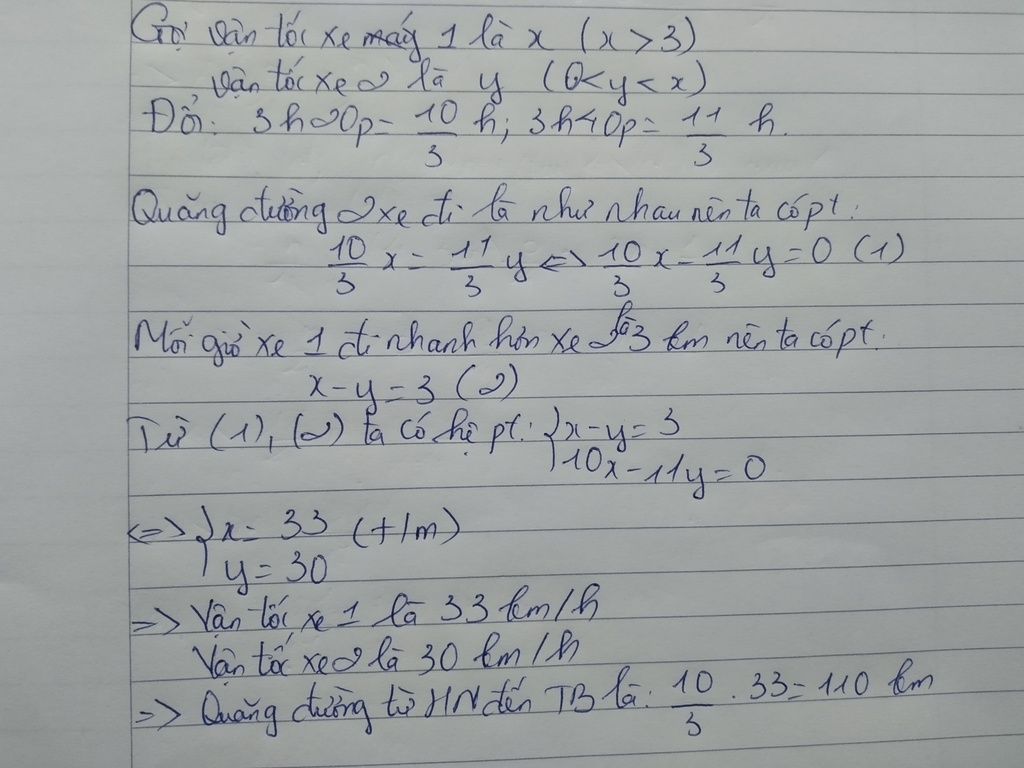 Gọi vận tốc xe máy 1 là x (x > 3)
vận tốc xe 2 là y (0 < y < x)
Đổi: 3h20p = 10/3 h; 3h40p = 11/3 h.
Quãng đường 2 xe đi là như nhau nên ta có pt:
10/3 x = 11/3 y <=> 10/3 x - 11/3 y = 0 (1)
Mỗi giờ xe 1 đi nhanh hơn xe 2 là 3 km nên ta có pt:
x - y = 3 (2)
Từ (1), (2) ta có hệ pt: { x - y = 3
10x - 11y = 0
<=> { x = 33 (t/m)
y = 30
=> Vận tốc xe 1 là 33 km/h
Vận tốc xe 2 là 30 km/h
=> Quãng đường từ HN đến TB là: 10/3 . 33 = 110 km